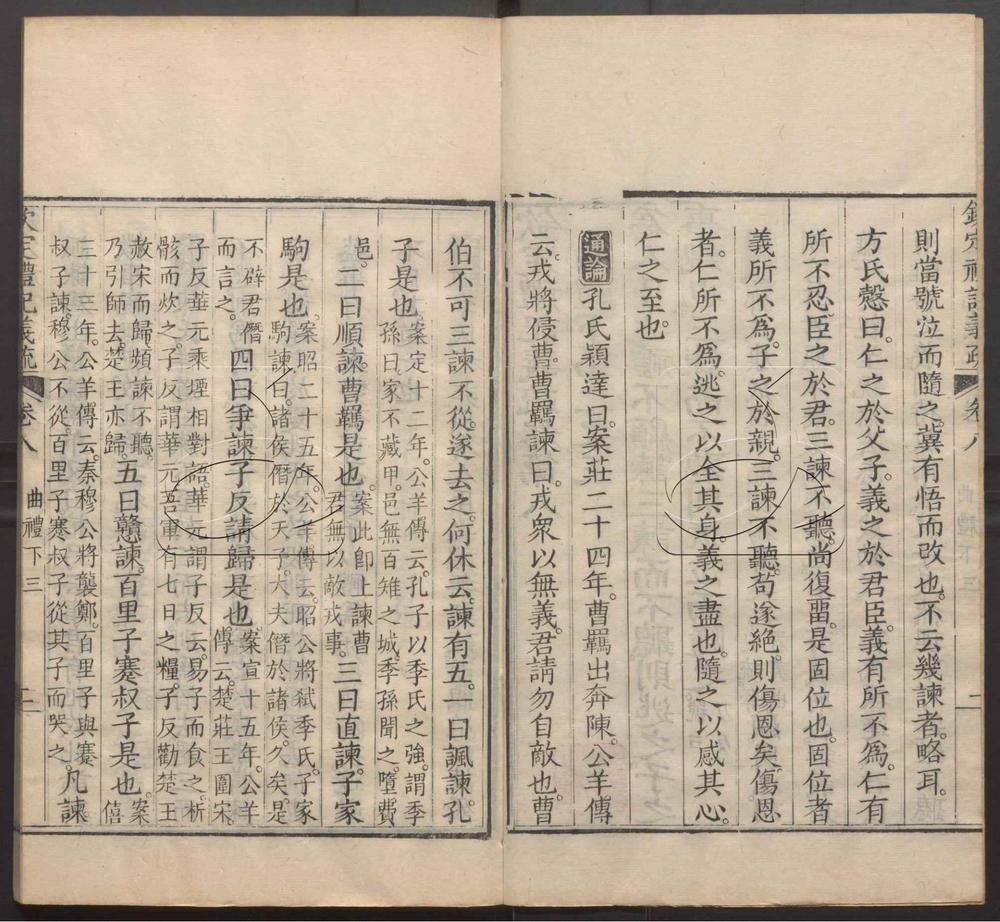 則當號泣而隨之。冀有悟而改也。不云幾諫者。略耳。
方氏慤曰。仁之於父子。義之於君臣。義有所不為。仁有
所不忍。臣之於君。三諫不聽。尚復畱。是固位也。固位者
義所不為。子之於親。三諫不聽。苟遂絕。則傷恩矣。傷恩
者。仁所不為。逃之以全其身。義之盡也。隨之以感其心。
仁之至也。
通論 孔氏穎達曰。案莊二十四年。曹羈出奔陳。公羊傳
云。戎將侵曹。曹羈諫曰。戎眾以無義。君請勿自敵也。曹
卷八
曲禮下三
二
伯不可。三諫不從。遂去之。何休云。諫有五。一曰諷諫。孔
子是也。案定十二年。公羊傳云。孔子以季氏之強。謂季
孫曰。家不藏甲。邑無百雉之城。季孫聞之。墮費
邑。二曰順諫。曹羈是也。案此即上諫曹
君無以敵戎事。三曰直諫。子家
駒是也。案昭二十五年。公羊傳云。昭公將弒季氏。子家
駒諫曰。諸侯僭於天子。大夫僭於諸侯。久矣。是
不辟君僭
而言之。四曰爭諫。子反請歸是也。案宣十五年。公羊
傳云。楚莊王圍宋。
子反華元乘堙相對語。華元謂子反云。易子而食之。析
骸而炊之。子反謂華元。吾軍有七日之糧。子反勸楚王
赦宋而歸。頻諫不聽。
乃引師去。楚王亦歸。五曰戇諫。百里子蹇叔子是也。案
僖
三十三年。公羊傳云。秦穆公將襲鄭。百里子與蹇
叔子諫。穆公不從。百里子蹇叔子從其子而哭之。凡諫
欽定禮記義疏
卷八
曲禮下三
二